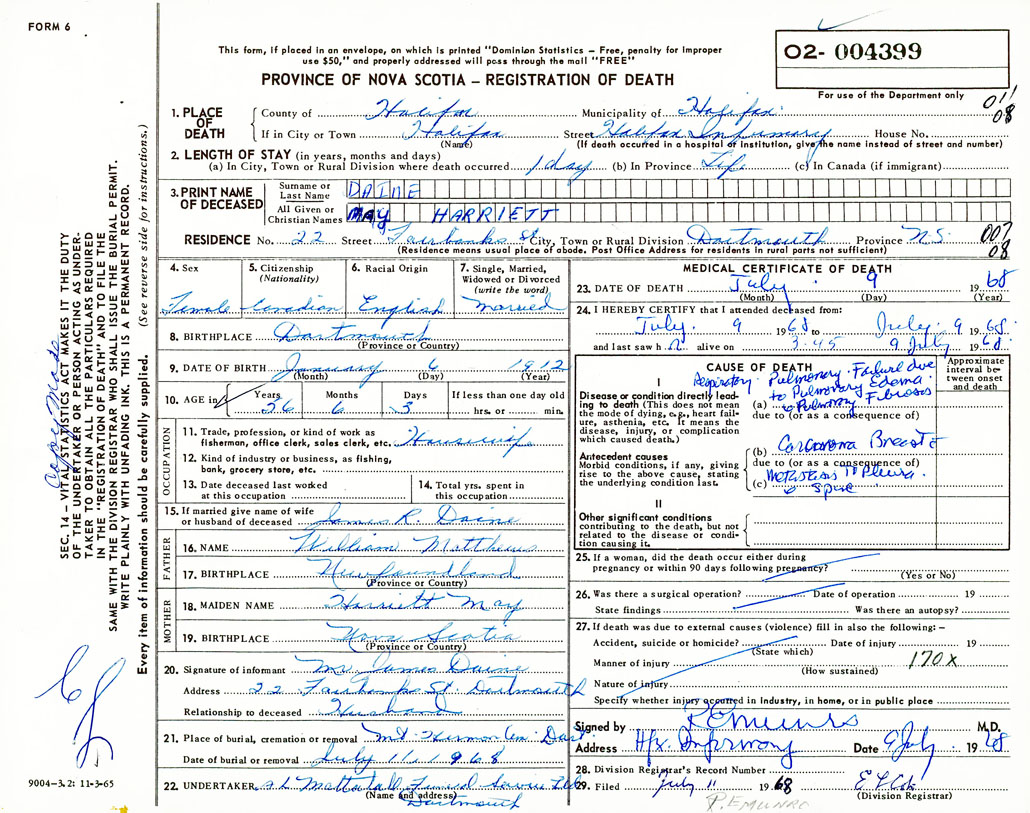 FORM 6
This form, if placed in an envelope, on which is printed "Dominion Statistics – Free, penalty for improper
use $50," and properly addressed will pass through the mail "FREE"
PROVINCE OF NOVA SCOTIA – REGISTRATION OF DEATH
O2- 004399
For use of the Department only
011
08
1. PLACE OF DEATH
County of Halifax Municipality of Halifax
If in City or Town Halifax Street Halifax Infirmary House No.
(Name) (If death occurred in a hospital or institution, give the name instead of street and number)
2. LENGTH OF STAY (in years, months and days)
(a) In City, Town or Rural Division where death occurred 1 day (b) In Province Life (c) In Canada (if immigrant)
3. PRINT NAME OF DECEASED
Surname or Last Name DAINE
All Given or Christian Names MAY HARRIETT
RESIDENCE No. 22 Street Fairbanks St City, Town or Rural Division Dartmouth Province N.S.
(Residence means usual place of abode. Post Office Address for residents in rural parts not sufficient)
007
08
4. Sex Female
5. Citizenship (Nationality) Canadian
6. Racial Origin English
7. Single, Married, Widowed or Divorced (write the word) married
8. BIRTHPLACE Dartmouth
(Province or Country)
9. DATE OF BIRTH January 6 1912
(Month) (Day) (Year)
10. AGE in Years 56 Months 6 Days 3 If less than one day old hrs. or min.
OCCUPATION
11. Trade, profession, or kind of work as
fisherman, office clerk, sales clerk, etc. Housewife
12. Kind of industry or business, as fishing,
bank, grocery store, etc.
13. Date deceased last worked
at this occupation
14. Total yrs. spent in
this occupation
15. If married give name of wife
or husband of deceased James R. Daine
FATHER
16. NAME William Matthews
17. BIRTHPLACE Newfoundland
(Province or Country)
MOTHER
18. MAIDEN NAME Harriett May
19. BIRTHPLACE Nova Scotia
(Province or Country)
20. Signature of informant Mr. James Daine
Address 22 Fairbanks St. Dartmouth
Relationship to deceased Husband
21. Place of burial, cremation or removal Mt Hermon Cem. Dart
Date of burial or removal July 11 1968
22. UNDERTAKER Mattatall Funeral Service Ltd
(Name and address) Dartmouth
MEDICAL CERTIFICATE OF DEATH
23. DATE OF DEATH July 9 1968
(Month) (Day) (Year)
24. I HEREBY CERTIFY that I attended deceased from:
July 9 1968 to July 9 1968
and last saw h alive on 3:45 9 July 1968
CAUSE OF DEATH
Approximate interval between onset and death
I
Disease or condition directly leading to death (This does not mean the mode of dying, e.g., heart failure, asthenia, etc. It means the disease, injury, or complication which caused death.)
Respiratory Pulmonary Failure due
to Pulmonary Edema
(a) Pulmonary Fibrosis
due to (or as a consequence of)
Antecedent causes
Morbid conditions, if any, giving rise to the above cause, stating the underlying condition last.
(b) Carcinoma Breast
due to (or as a consequence of)
(c) Metastasis to Pleura
Spine
II
Other significant conditions
contributing to the death, but not related to the disease or condition causing it.
25. If a woman, did the death occur either during
pregnancy or within 90 days following pregnancy?
(Yes or No)
26. Was there a surgical operation? Date of operation 19
State findings Was there an autopsy?
27. If death was due to external causes (violence) fill in also the following: –
Accident, suicide or homicide? Date of injury 19
(State which)
Manner of injury 170X
(How sustained)
Nature of injury
Specify whether injury occurred in Industry, in home, or in public place
Signed by REMunro M.D.
Address Hfx. Infirmary Date 9 July 1968
28. Division Registrar's Record Number
29. Filed July 11 1968
(Division Registrar)
P.E MUNRO
SEC. 14 – VITAL STATISTICS ACT MAKES IT THE DUTY
OF THE UNDERTAKER OR PERSON ACTING AS UNDER-
TAKER TO OBTAIN ALL THE PARTICULARS REQUIRED
IN THE "REGISTRATION OF DEATH" AND TO FILE THE
SAME WITH THE DIVISION REGISTRAR WHO SHALL ISSUE THE BURIAL PERMIT.
WRITE PLAINLY WITH UNFADING INK. THIS IS A PERMANENT RECORD.
Every item of information should be carefully supplied. (See reverse side for instructions.)
Copy Made
9004-3.2: 11-3-65